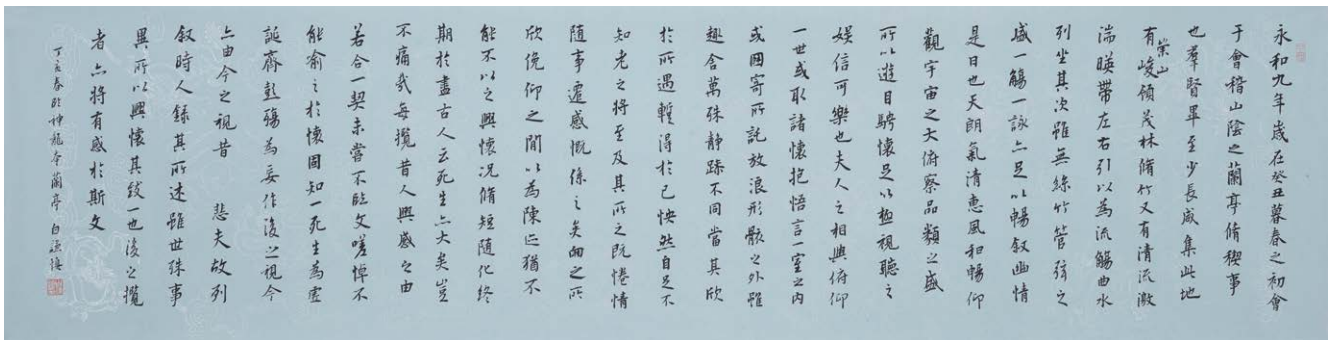 永和九年歲在癸丑暮春之初會
于會稽山陰之蘭亭脩稧事
也羣賢畢至少長咸集此地
有崇山峻領茂林脩竹又有清流激
湍暎帶左右引以為流觴曲水
列坐其次雖無絲竹管弦之
盛一觴一詠亦足以暢敘幽情
是日也天朗氣清惠風和暢仰
觀宇宙之大俯察品類之盛
所以遊目騁懷足以極視聽之
娛信可樂也夫人之相與俯仰
一世或取諸懷抱悟言一室之內
或因寄所託放浪形骸之外雖
趣舍萬殊靜躁不同當其欣
於所遇蹔得於己怏然自足不
知老之將至及其所之既惓情
隨事遷感慨係之矣向之所
欣俛仰之閒以為陳迹猶不
能不以之興懷況脩短隨化終
期於盡古人云死生亦大矣豈
不痛哉每攬昔人興感之由
若合一契未嘗不臨文嗟悼不
能喻之於懷固知一死生為虛
誕齊彭殤為妄作後之視今
亦由今之視昔 悲夫故列
敘時人錄其所述雖世殊事
異所以興懷其致一也後之攬
者亦將有感於斯文
丁亥春臨神龍本蘭亭 白